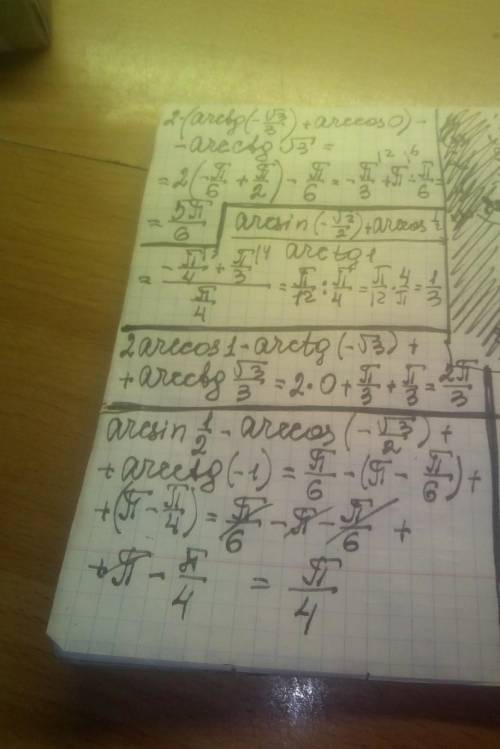 2·(arctg(-√3/3)+arccos0)-
-arcctg√3=
=2(-π/6+π/2)-π/6=-π/3+π-π/6=
=5π/6
arcsin(-√2/2)+arccos 1/2
arctg1
=(-π/4+π/3)/(π/4)=π/12:π/4=π/12·4/π=1/3
2arccos1-arctg(-√3)+
+arcctg √3/3=2·0+π/3+π/3=2π/3
arcsin 1/2-arccos(-√3/2)+
+arcctg(-1)=π/6-(π-π/6)+
+(π-π/4)=π/6-π-π/6+
+π-π/4 =π/4